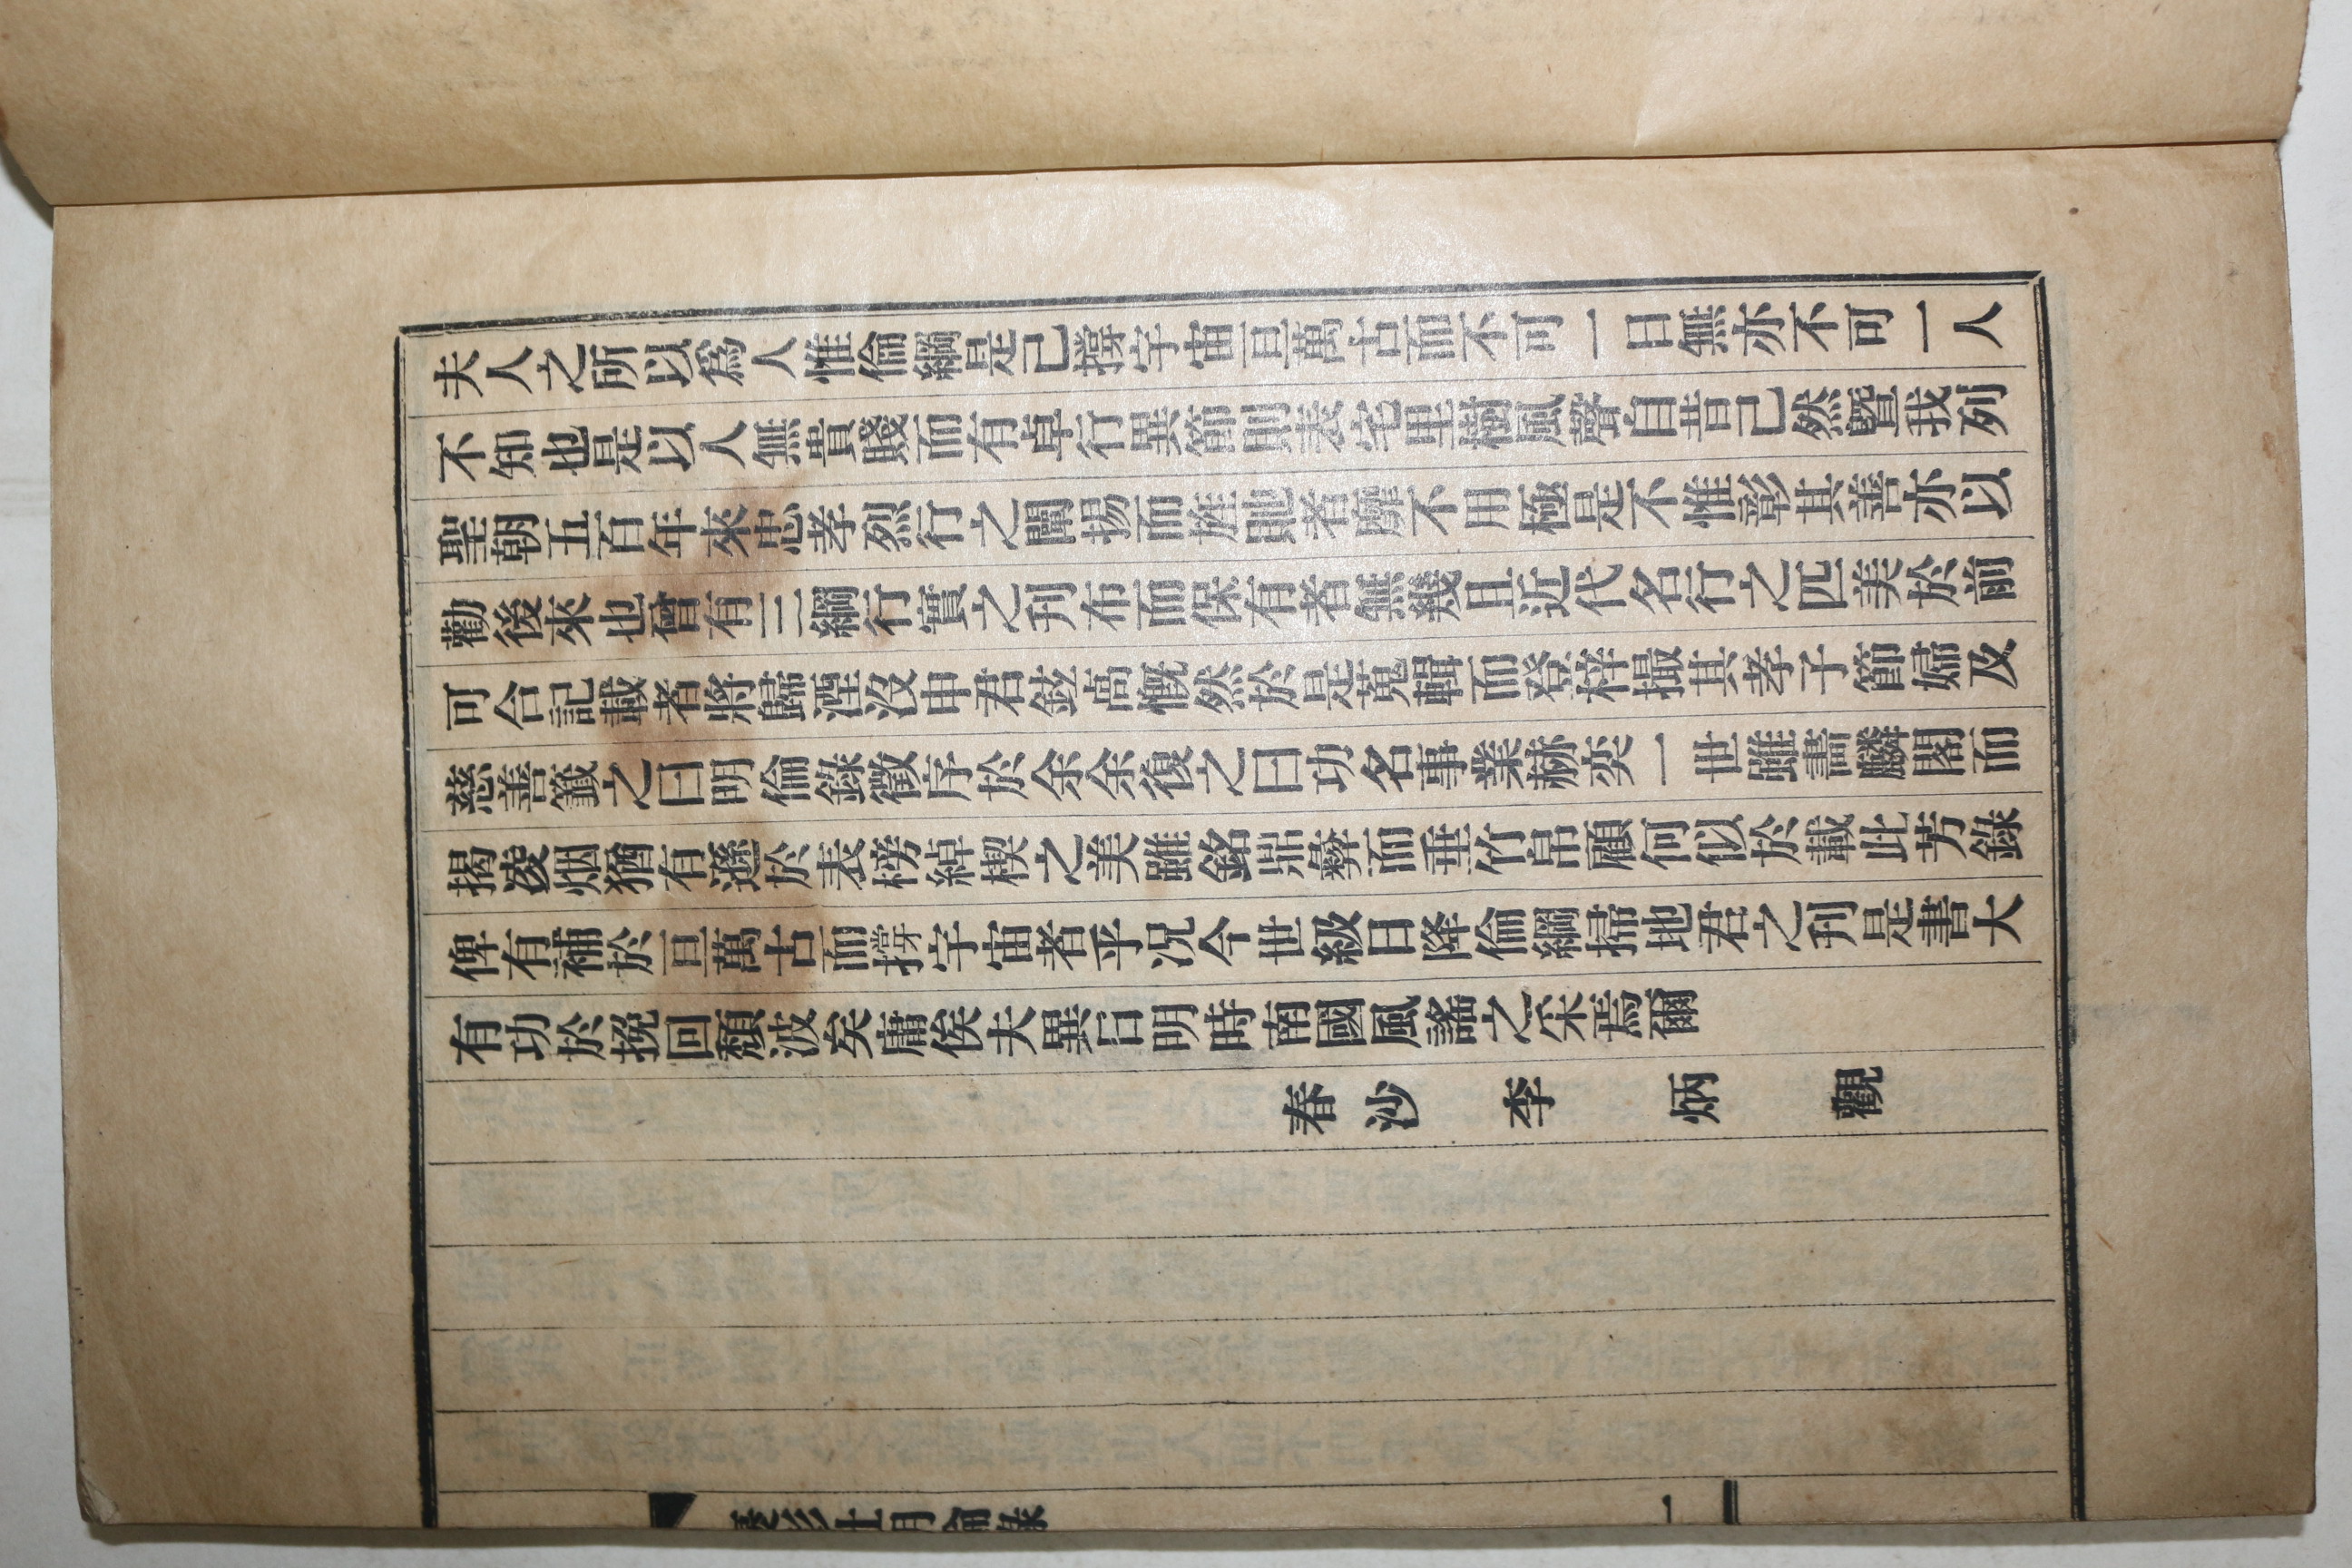 夫人之所以爲人惟倫綱是已撐宇宙亘萬古而不可一日無亦不可一人
不知也是以人無貴賤而有卓行異節則表宅里樹風聲自昔已然曁我列
聖朝五百年來忠孝烈行之闡揚而旌貤者靡不用極是不惟彰其善亦以
勸後來也曾有三綱行實之刊布而保有者無幾且近代名行之匹美於前
可合記載者將歸湮沒申君鉉高慨然於是蒐輯而登梓撮其孝子節婦及
慈善籤之曰明倫錄徵序於余余復之曰功名事業赫奕一世雖畵麟閣而
揭凌烟猶有遜於表榜綽楔之美雖銘鼎彝而垂竹帛顧何似於載此芳錄
俾有補於亘萬古而撐宇宙者乎况今世級日降倫綱掃地君之刊是書大
有功於挽回頹波矣庸俟夫異日明時南國風謠之采焉爾
春沙李炳觀
一